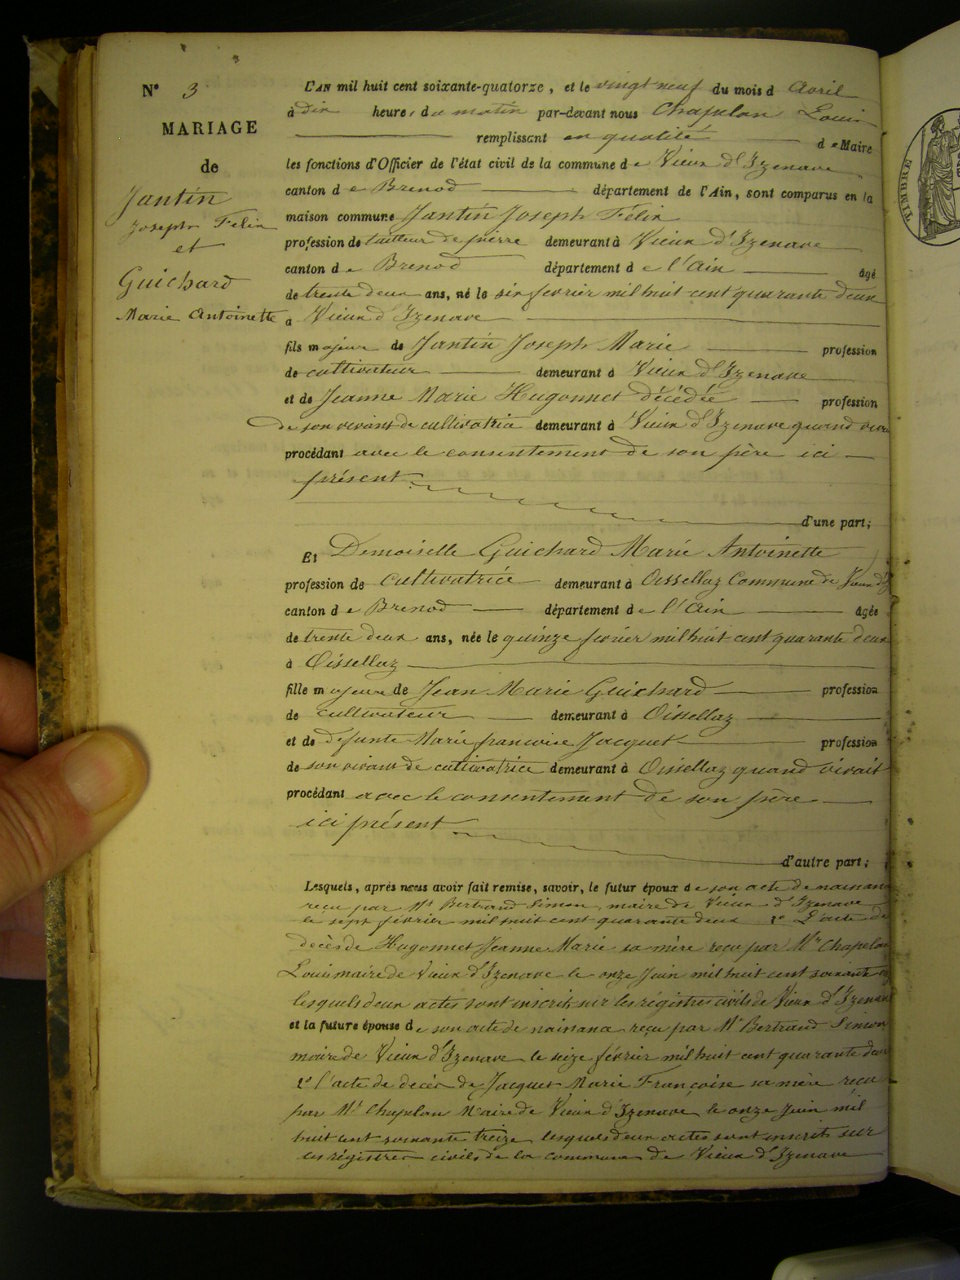 N° 3
MARIAGE
de
Jantin
Joseph Félix
et
Guichard
Marie Antoinette
L'AN mil huit cent soixante-quatorze, et le vingt neuf du mois d Avril
à dix heures du matin par-devant nous Chapelan Louis
remplissant en qualité de Maire
les fonctions d'Officier de l'état civil de la commune de Vieux d'Izenave
canton de Brenod département de l'Ain, sont comparus en la
maison commune Jantin Joseph Félix
profession de tailleur de pierre demeurant à Vieux d'Izenave
canton de Brenod département de l'Ain âgé
de trente deux ans, né le six fevrier mil huit cent quarante deux
à Vieux d'Izenave
fils majeur de Jantin Joseph Marie profession
de cultivateur demeurant à Vieux d'Izenave
et de Jeanne Marie Hugonnet décédée profession
de son vivant de cultivatrice demeurant à Vieux d'Izenave quand
procédant avec le consentement de son père ici
présent
d'une part;
Et Demoiselle Guichard Marie Antoinette
profession de cultivatrice demeurant à Oissellaz Commune de Vieux d'Iz
canton de Brenod département de l'Ain âgée
de trente deux ans, née le quinze fevrier mil huit cent quarante deux
à Oissellaz
fille majeure de Jean Marie Guichard profession
de cultivateur demeurant à Oissellaz
et de defunte Marie francoise Jacquet profession
de son vivant de cultivatrice demeurant à Oissellaz quand vivait
procédant avec le consentement de son père
ici présent
d'autre part;
Lesquels, après nous avoir fait remise, savoir, le futur époux de son acte de naissan
reçu par Mr Bertrand Simon maire de Vieux d'Izenave
le sept février mil huit cent quarante deux 2° L'acte de
décès de Hugonnet Jeanne Marie sa mère reçu par Mr Chapelan
Louis maire de Vieux d'Izenave le onze Juin mil huit cent soixante
lesquels deux actes sont inscrits sur les régistres civils de Vieux d'Izenave
et la future épouse de son acte de naissance reçu par Mr Bertrand Simon
maire de Vieux d'Izenave le seize février mil huit cent quarante deux
2° l'acte de décès de Jacquet Marie Françoise sa mère reçu
par Mr Chapelan Maire de Vieux d'Izenave le onze Juin mil
huit cent soixante treize lesquels deux actes sont inscrits sur
les régistres civils de la commune de Vieux d'Izenave
TIMBRE